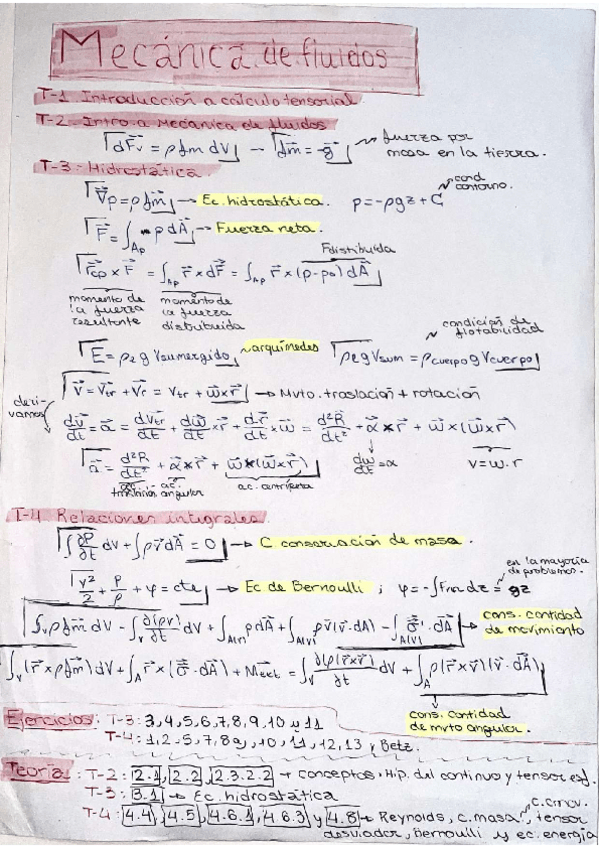 Mecánica de fluidos
T-1 Introducción a cálculo tensorial
T-2 Intro. a Mecánica de fluidos
dF⃗v = ρ f⃗m dV → f⃗m = -g⃗ ~ fuerza por masa en la tierra.
T-3: Hidrostática.
∇⃗p = ρ f⃗m → Ec. hidrostática. p = -ρgz + C ~ cond contorno.
F⃗ = ∫Ap - p dA⃗ → Fuerza neta.
Fdistribuida
r⃗cp × F⃗ = ∫Ap r⃗ × dF⃗ = ∫Ap r⃗ × (p-p₀) dA⃗
momento de la fuerza resultante
momento de la fuerza distribuida
condición de flotabilidad
E = ρ₂ g Vsumergido ~ arquímedes
ρeg Vsum = ρcuerpo g Vcuerpo
v⃗ = v⃗tr + v⃗r = v⃗tr + ω⃗ × r⃗ → Mvto. traslación + rotación
derivamos
dv⃗/dt = a⃗ = dv⃗tr/dt + dω⃗/dt × r⃗ + dr⃗/dt × ω⃗ = d²R⃗/dt² + α⃗ × r⃗ + ω⃗ × (ω⃗ × r⃗)
a⃗ = d²R⃗/dt² + α⃗ × r⃗ + ω⃗ × (ω⃗ × r⃗) dω⃗/dt = α v = ω.r
ac. angular
ac. centrípeta
T-4 Relaciones integrales.
∫ ∂ρ/∂t dV + ∫ρv⃗ dA⃗ = 0 → C conservación de masa.
en la mayoría de problemas.
v²/2 + p/ρ + φ = cte → Ec de Bernoulli ; φ = -∫Fm dz = gz
∫v ρ f⃗m dV - ∫v ∂(ρv)/∂t dV + ∫A(v) p dA + ∫A(v) ρv⃗ (v⃗·dA) - ∫A(v) σ⃗'·dA⃗ → cons. cantidad de movimiento
∫v (r⃗ × ρ f⃗m) dV + ∫A r⃗ × (σ⃗·dA⃗) + M⃗ext = ∫v ∂(ρ(r⃗×v⃗))/∂t dV + ∫A ρ(r⃗×v⃗)(v⃗·dA⃗)
cons. cantidad de mvto angular.
Ejercicios: T-3: 3,4,5,6,7,8,9,10 y 11
T-4: 1,2,5,7,8,9,10,11,12,13 y Betz.
Teoría: T-2: 2.1, 2.2, 2.3.2.2 → conceptos, Hip. del continuo y tensor esf.
T-3: 3.1 → Ec. hidrostática
c.cmov.
T-4: 4.4, 4.5, 4.6.1, 4.6.3 y 4.8 → Reynolds, c.masa, tensor
desviador, Bernoulli y ec. energía